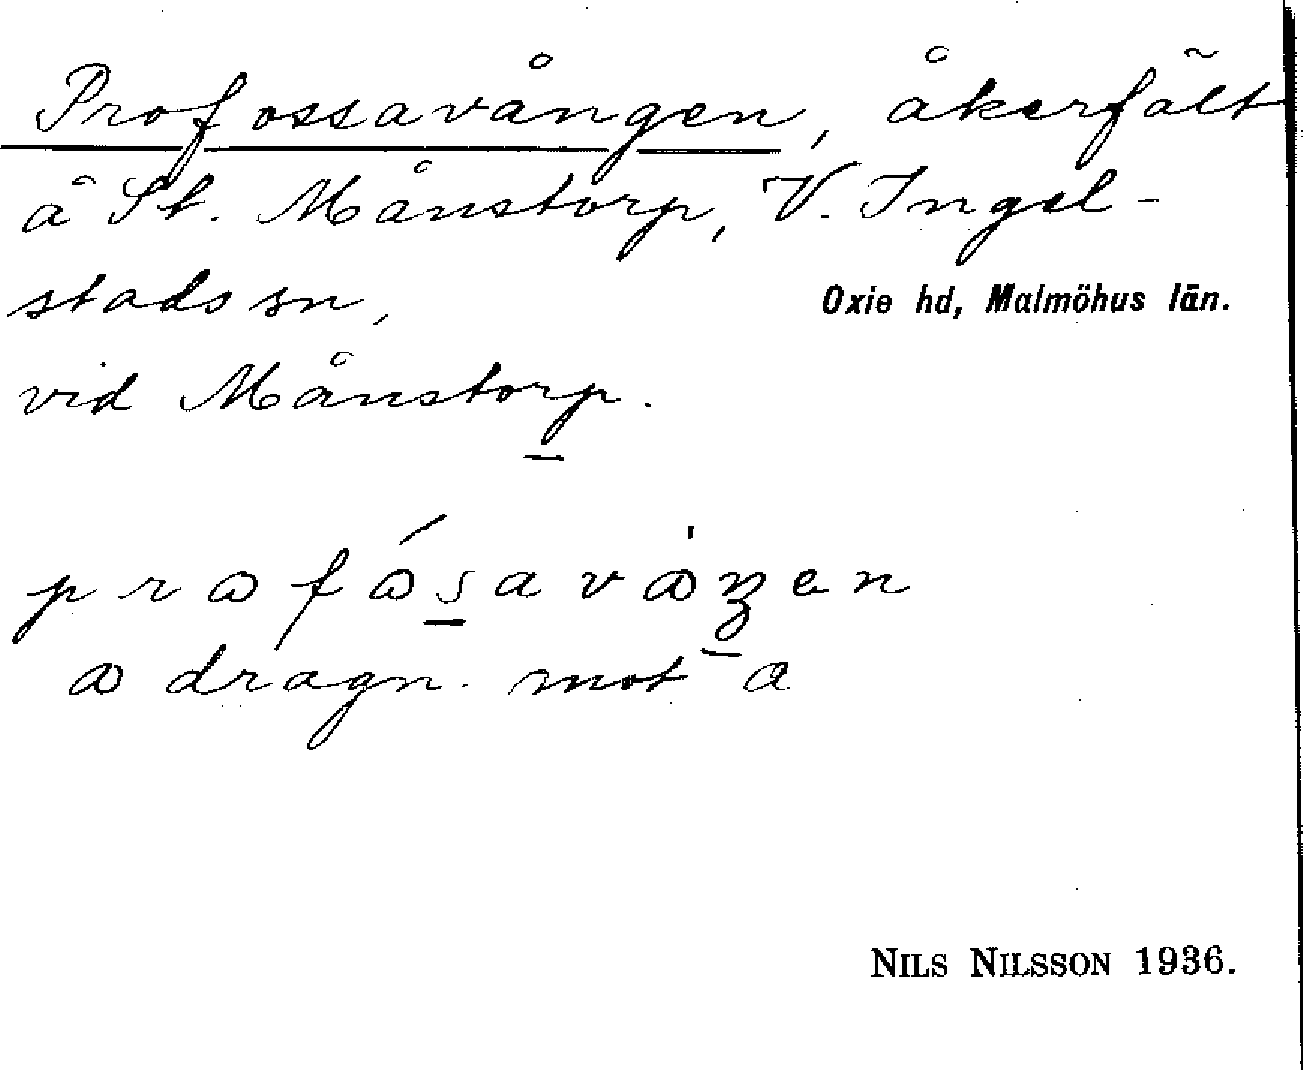 Profossavången, åkerfält
å St. Månstorp, V. Ingel-
stads sn,
Oxie hd, Malmöhus län.
vid Månstorp.
a dragn. mot a
NILS NILSSON 1936.